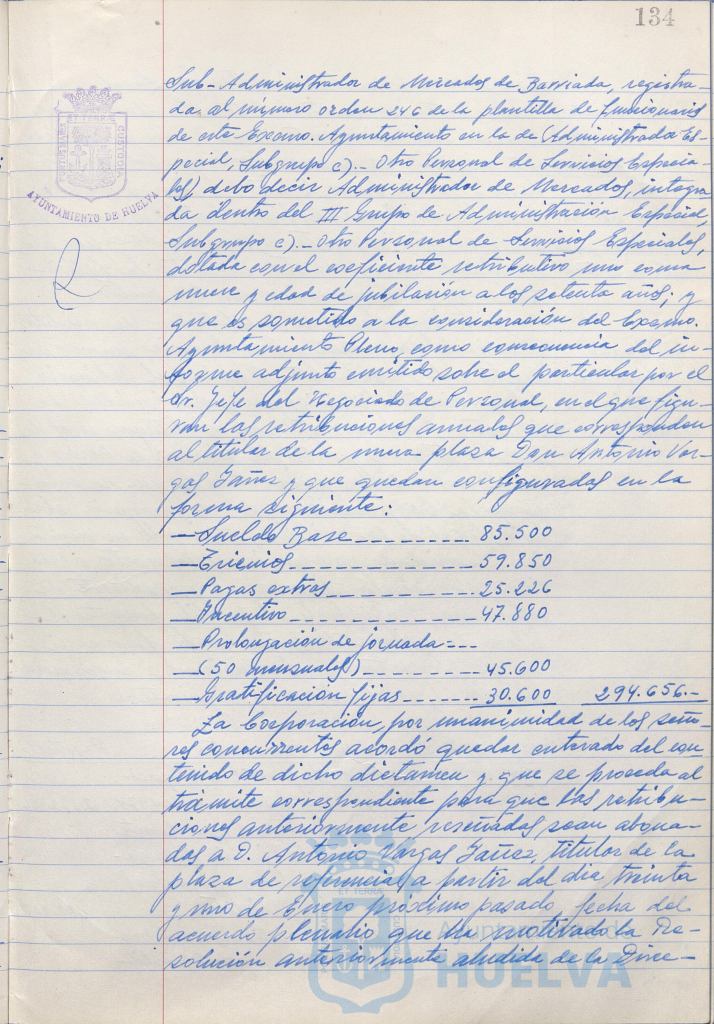 134
Sub-Administrador de Mercados de Barriada, registra-
da al número orden 246 de la plantilla de funcionarios
de este Excmo. Ayuntamiento en la de (Administrador Es-
pecial, Subgrupo c).- Otro Personal de Servicios Especia-
les) debe decir Administrador de Mercados, integra-
da dentro del III Grupo de Administración Especial,
Subgrupo c).- Otro Personal de Servicios Especiales,
dotada con el coeficiente retributivo uno coma
nueve y edad de jubilación a los setenta años; y
que es sometido a la consideración del Excmo.
Ayuntamiento Pleno, como consecuencia del in-
forme adjunto emitido sobre el particular por el
Sr. Jefe del Negociado de Personal, en el que figu-
ran las retribuciones anuales que corresponden
al titular de la nueva plaza Don Antonio Var-
gas Yañez y que quedan configuradas en la
forma siguiente:
—Sueldo Base --------- 85.500
—Trienios ------------ 59.850
—Pagas extras -------- 25.226
—Incentivo ----------- 47.880
—Prolongación de jornada---
—(50 mensuales) -------- 45.600
—Gratificación fijas ------- 30.600 294.656.-
La Corporación, por unanimidad de los seño-
res concurrentes acordó quedar enterado del con-
tenido de dicho dictamen y que se proceda al
trámite correspondiente para que las retribu-
ciones anteriormente reseñadas sean abona-
das a D. Antonio Vargas Yañez, titular de la
plaza de referencias a partir del dia treinta
y uno de Enero próximo pasado, fecha del
acuerdo plenario que ha motivado la Re-
solución anteriormente aludida de la Direc-
AYUNTAMIENTO DE HUELVA
HUELVA